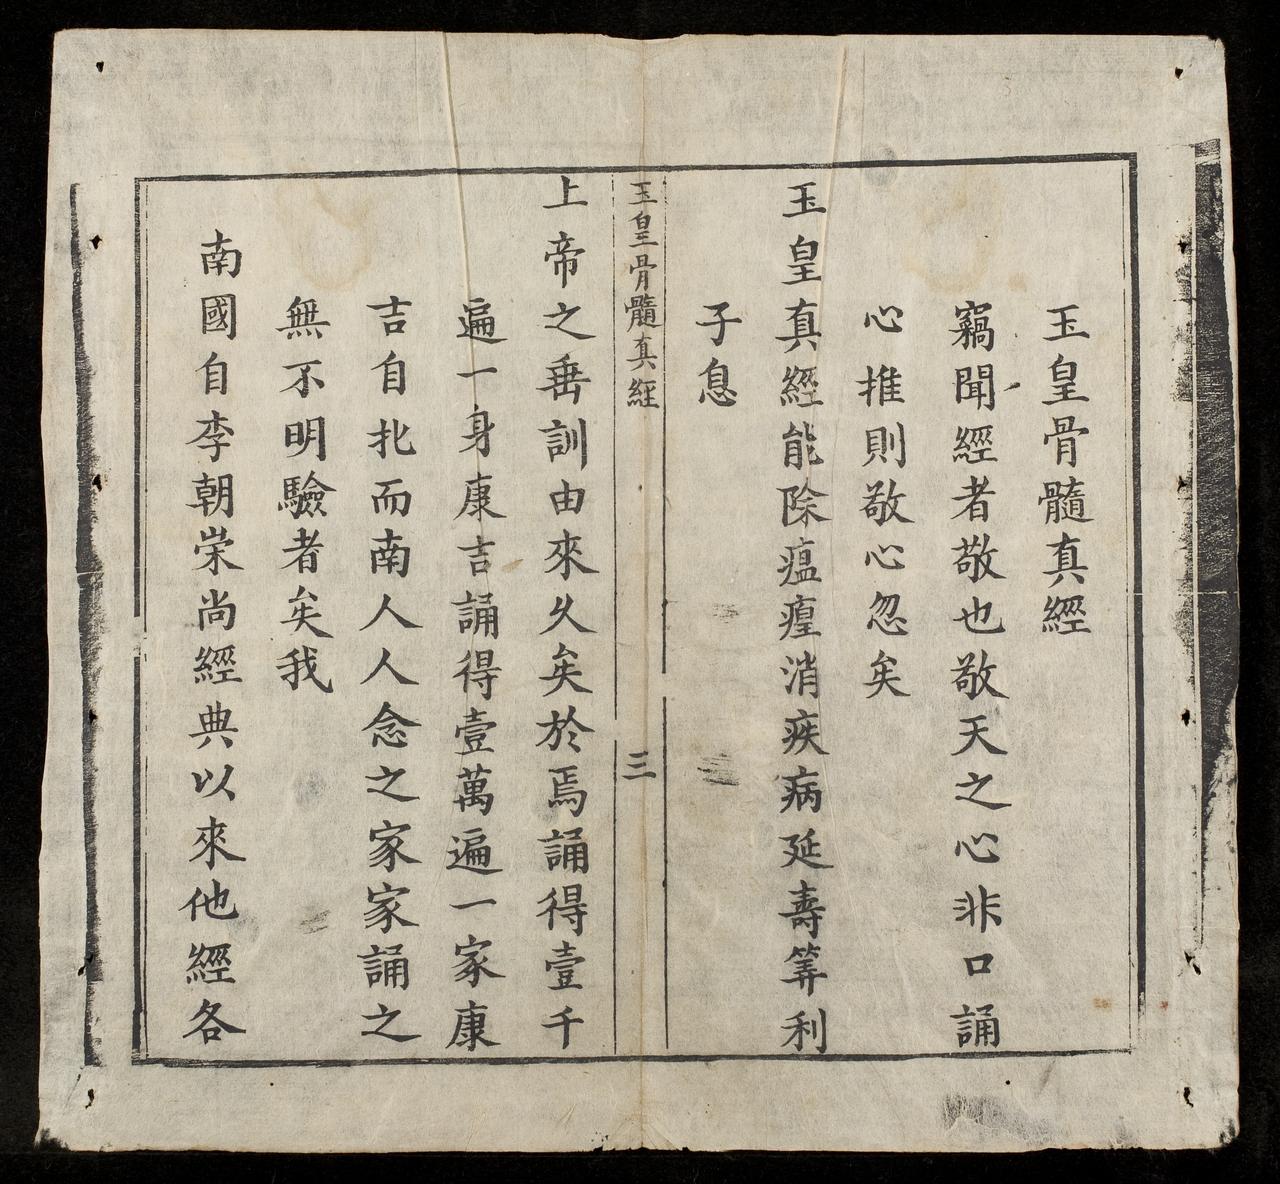 玉皇骨髓真經
竊聞經者敬也敬天之心非口誦
心推則敬心忽矣
玉皇真經能除瘟㾮消疾病延壽筭利
子息
玉皇骨髓真經
三
上帝之垂訓由來久矣於焉誦得壹千
遍一身康吉誦得壹萬遍一家康
吉自北而南人人念之家家誦之
無不明驗者矣我
南國自李朝崇尚經典以來他經各